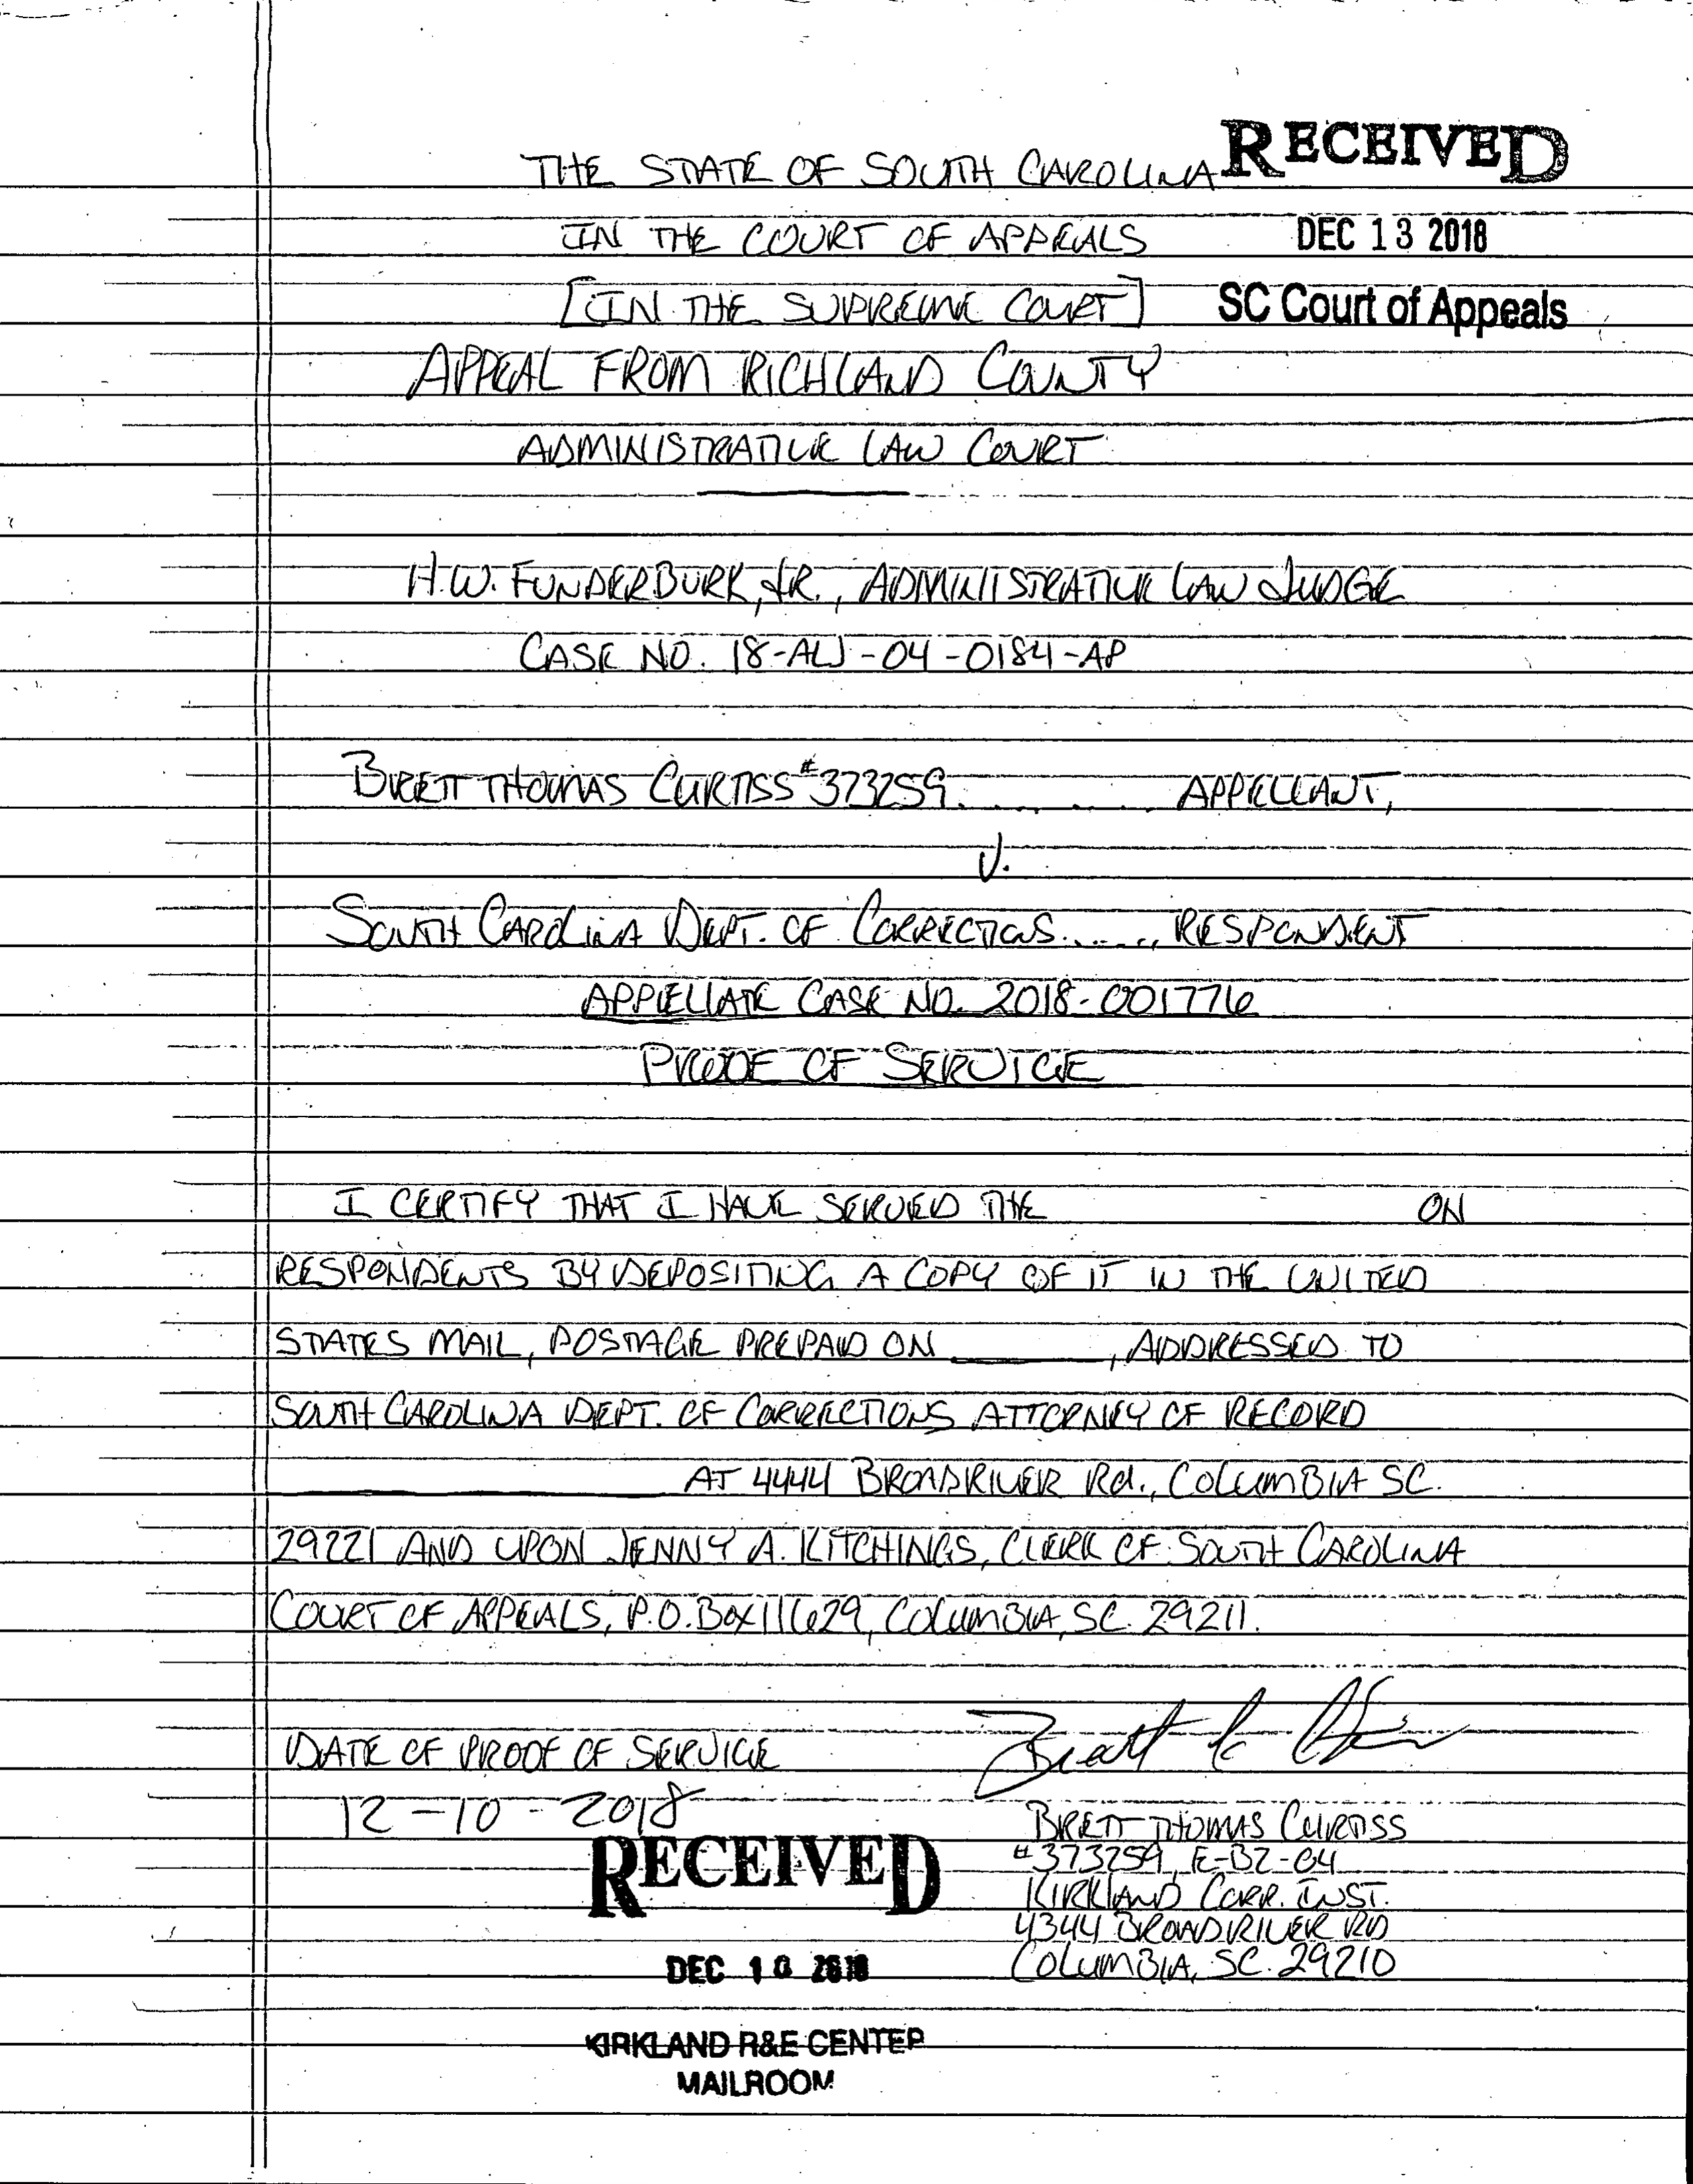 THE STATE OF SOUTH CAROLINA RECEIVED
IN THE COURT OF APPEALS DEC 13 2018
[IN THE SUPREME COURT] SC Court of Appeals
APPEAL FROM RICHLAND COUNTY
ADMINISTRATIVE LAW COURT
H.W. FUNDERBURK, JR., ADMINISTRATIVE LAW JUDGE
CASE NO. 18-ALJ-04-0184-AP
BRETT THOMAS CURTISS #373259.......... APPELLANT,
V.
SOUTH CAROLINA DEPT. OF CORRECTIONS...... RESPONDENT
APPELLATE CASE NO. 2018-001776
PROOF OF SERVICE
I CERTIFY THAT I HAVE SERVED THE ON
RESPONDENTS BY DEPOSITING A COPY OF IT IN THE UNITED
STATES MAIL, POSTAGE PREPAID ON ________, ADDRESSED TO
SOUTH CAROLINA DEPT. OF CORRECTIONS ATTORNEY OF RECORD
________________ AT 4444 BROADRIVER Rd., COLUMBIA SC.
29221 AND UPON JENNY A. KITCHINGS, CLERK OF SOUTH CAROLINA
COURT OF APPEALS, P.O. BOX 11629, COLUMBIA, SC. 29211.
DATE OF PROOF OF SERVICE
12-10-2018
BRETT THOMAS CURTISS
#373259, E-B2-04
KIRKLAND CORR. INST.
4344 BROADRIVER RD
COLUMBIA, SC. 29210
RECEIVED
DEC 10 2018
KIRKLAND R&E CENTER
MAILROOM